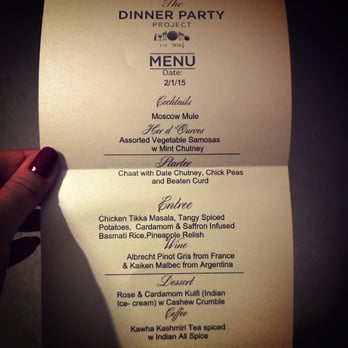 The
DINNER PARTY
PROJECT
MENU
Date:
2/1/15
Cocktails
Moscow Mule
Hor d' Ourves
Assorted Vegetable Samosas
w Mint Chutney
Starter
Chaat with Date Chutney, Chick Peas
and Beaten Curd
Entree
Chicken Tikka Masala, Tangy Spiced
Potatoes, Cardamom & Saffron Infused
Basmati Rice,Pineapple Relish
Wine
Albrecht Pinot Gris from France
& Kaiken Malbec from Argentina
Dessert
Rose & Cardamom Kulfi (Indian
Ice- cream) w Cashew Crumble
Coffee
Kawha Kashmiri Tea spiced
w Indian All Spice